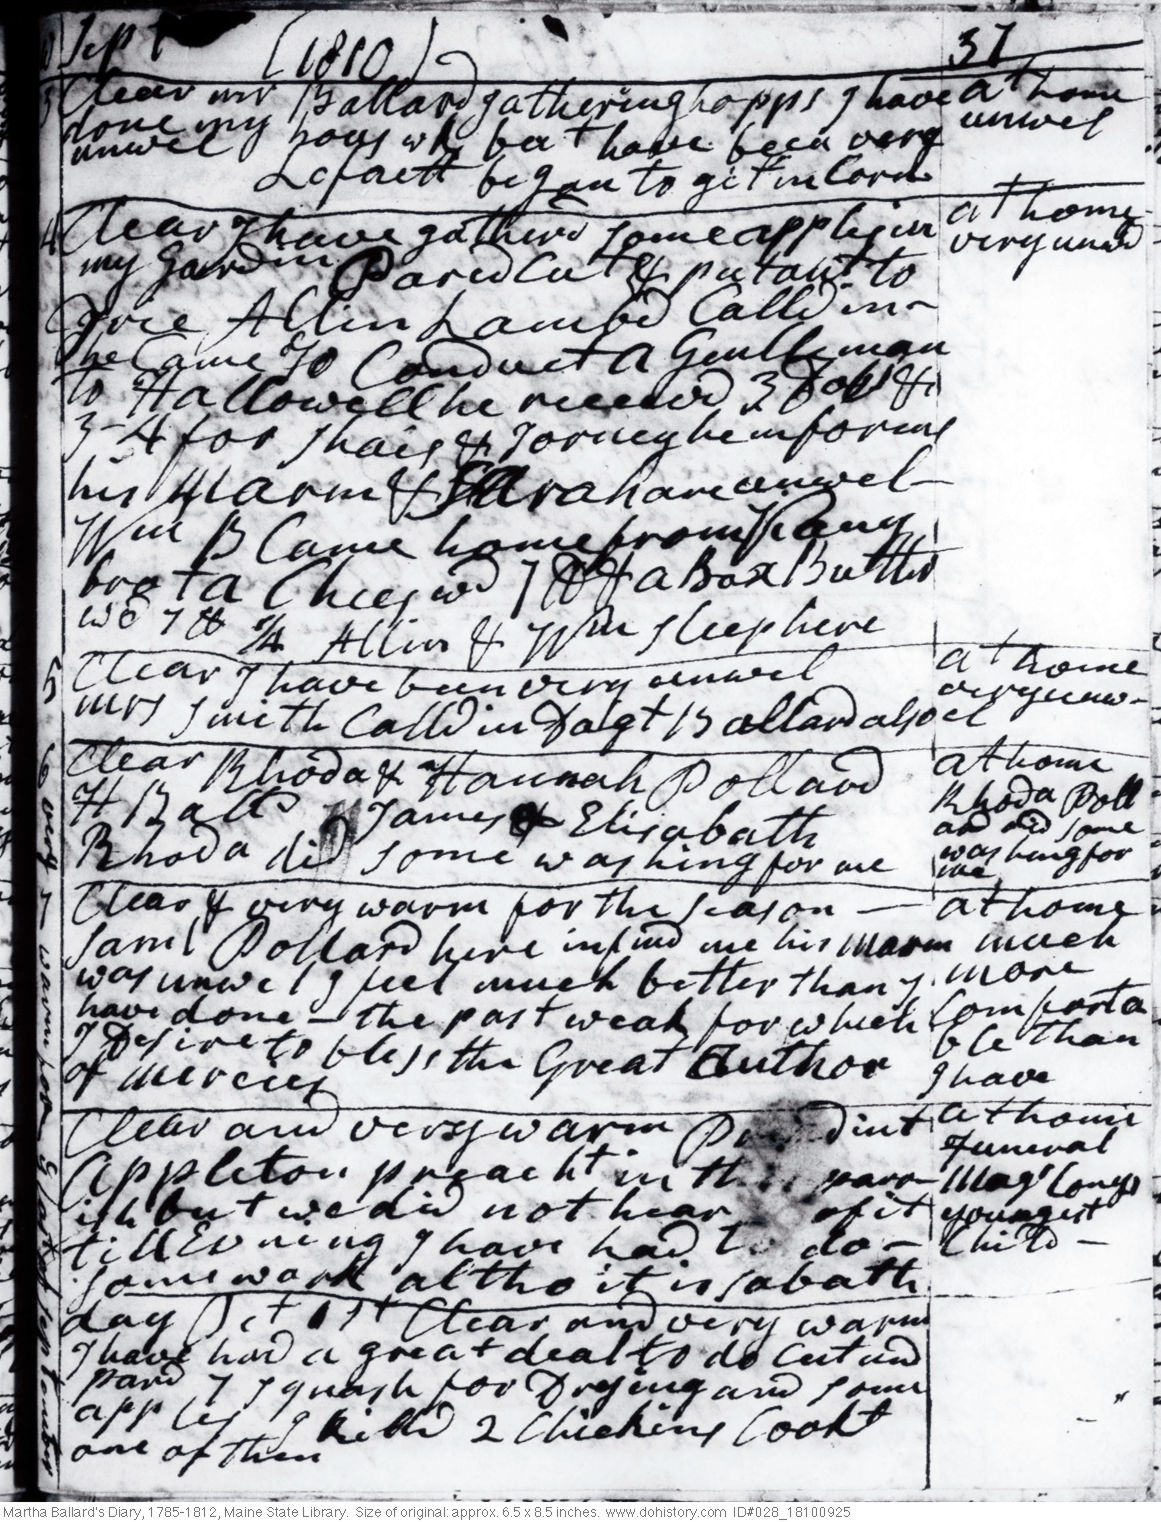 Sept (1810) 37
3 Clear mr Ballard gathering hopps I have at home
done my hous wk but have been very unwel
unwel
Lafaett began to git in Corn
4 Clear I have gatherd some apples in at home
my Gardin Pared Cut & put out to very unwel
Drie Allin Lambd Calld in
he Came to Conduct a Gentleman
to Hallowell he received 3 Dols &
3-4 for shais & Jorney he informs
his Marm & Sarah are unwel
Wm B Came home from
brot a Chees wd 7 lb & a Box Butter
wd 7 lb 3/4 Allin & Wm sleep here
5 Clear I have been very unwel at home
mrs Smith Calld in Dagt Ballard also very unw-
el
6 Clear Rhoda & Hannah Pollard at home
H Ball James & Elisabath Rhoda Poll
Rhoda did some washing for me ard did some
washing for
me
7 Clear & very warm for the season — at home
Saml Pollard here inford me his marm much
was unwel I feel much better than I more
have done - the past weak for which Comforta
I Desire to bless the Great Author ble than
of mercies I have
Clear and very warm Preadint at home
Appleton preacht in th parr funeral
ish but we did not hear of it Mag Longs
till Evning I have had to do - youngest
some work altho it is sabath Child -
day Oct 1st Clear and very warm
I have had a great deal to do Cut and
pard 7 squash for Drying and some
apples I killd 2 Chickins Cookt
one of them
Martha Ballard's Diary, 1785-1812, Maine State Library. Size of original: approx. 6.5 x 8.5 inches. www.dohistory.com ID#028_18100925